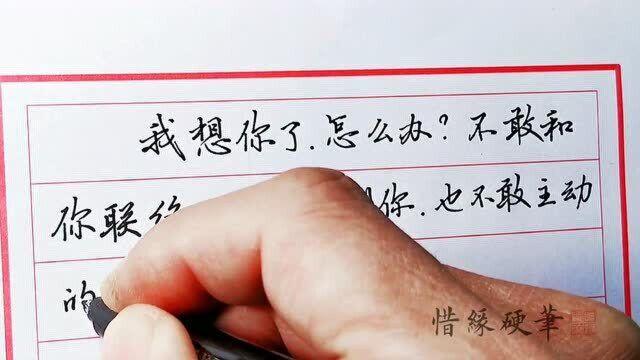 我想你了.怎么办?不敢和
你联你.也不敢主动
的
惜緣硬筆